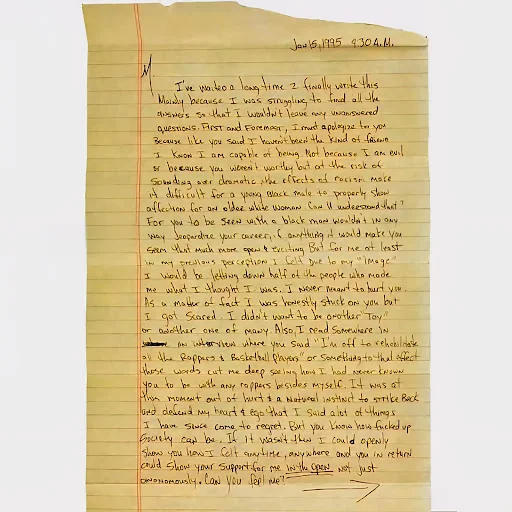 Jan 15, 1995 4:30 A.M.
M
I've waited a long time 2 finally write this
Mainly because I was struggling to find all the
answers so that I wouldn't leave any unanswered
questions. First and Foremost, I must apologize to you
Because like you said I haven't been the kind of friend
I Know I am capable of being. Not because I am evil
or because you weren't worthy but at the risk of
sounding over dramatic, the effects of racism make
it difficult for a young Black male to properly show
affection for an older white woman. Can U understand that?
For you to be seen with a black man wouldn't in any
way jeopardize your career, if anything it would make you
seem that much more open & exciting. But for me at least
in my previous perception I felt Due to my "image"
I would be letting down half of the people who made
me what I thought I was. I never meant to hurt you.
As a matter of fact I was honestly stuck on you but
I got scared. I didn't want to be another "Toy"
or another one of many. Also, I read somewhere in
an interview where you said "I'm off to rehabilitate
all the Rappers & Basketball players" or something to that effect
those words cut me deep seeing how I had never known
you to be with any rappers besides myself. It was at
this moment out of hurt & a natural instinct to strike Back
and defend my heart & ego that I said alot of things
I have since come to regret. But you know how fucked up
Society can be. If it wasn't then I could openly
show you how I felt anytime, anywhere and you in return
could show your support for me in the open not just
Can you feel me?